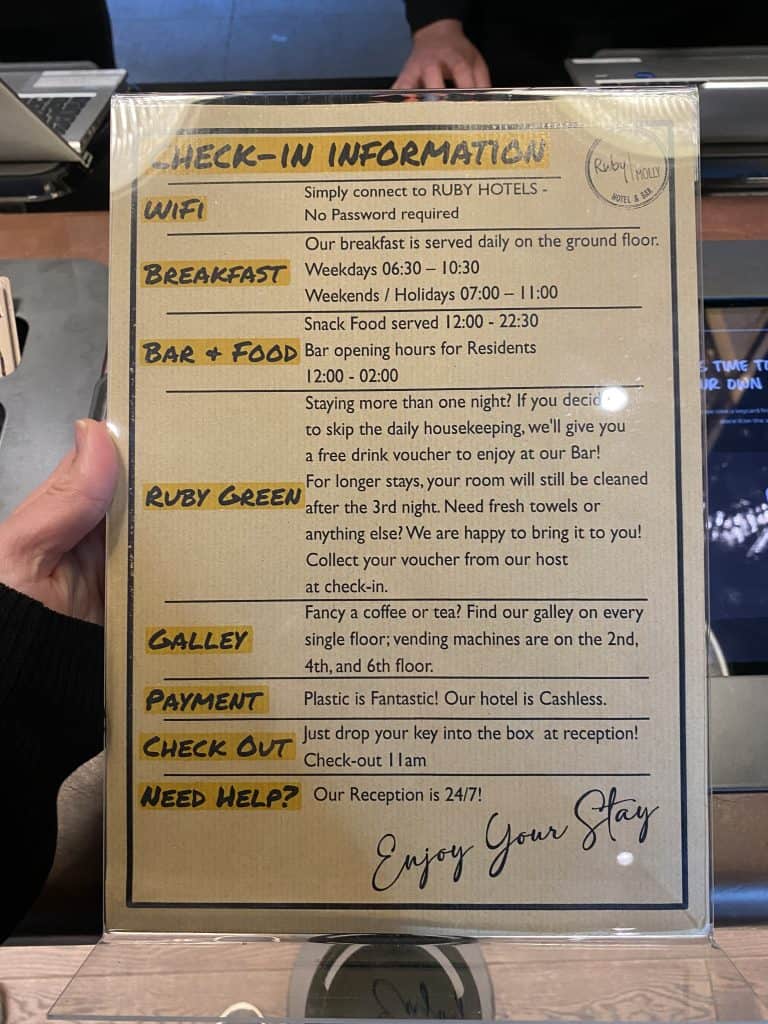 CHECK-IN INFORMATION
Ruby MOLLY
HOTEL & BAR
WIFI
Simply connect to RUBY HOTELS -
No Password required
BREAKFAST
Our breakfast is served daily on the ground floor.
Weekdays 06:30 – 10:30
Weekends / Holidays 07:00 – 11:00
BAR + FOOD
Snack Food served 12:00 - 22:30
Bar opening hours for Residents
12:00 - 02:00
RUBY GREEN
Staying more than one night? If you decide
to skip the daily housekeeping, we'll give you
a free drink voucher to enjoy at our Bar!
For longer stays, your room will still be cleaned
after the 3rd night. Need fresh towels or
anything else? We are happy to bring it to you!
Collect your voucher from our host
at check-in.
GALLEY
Fancy a coffee or tea? Find our galley on every
single floor; vending machines are on the 2nd,
4th, and 6th floor.
PAYMENT
Plastic is Fantastic! Our hotel is Cashless.
CHECK OUT
Just drop your key into the box at reception!
Check-out 11am
NEED HELP?
Our Reception is 24/7!
Enjoy Your Stay
TIME
OWN